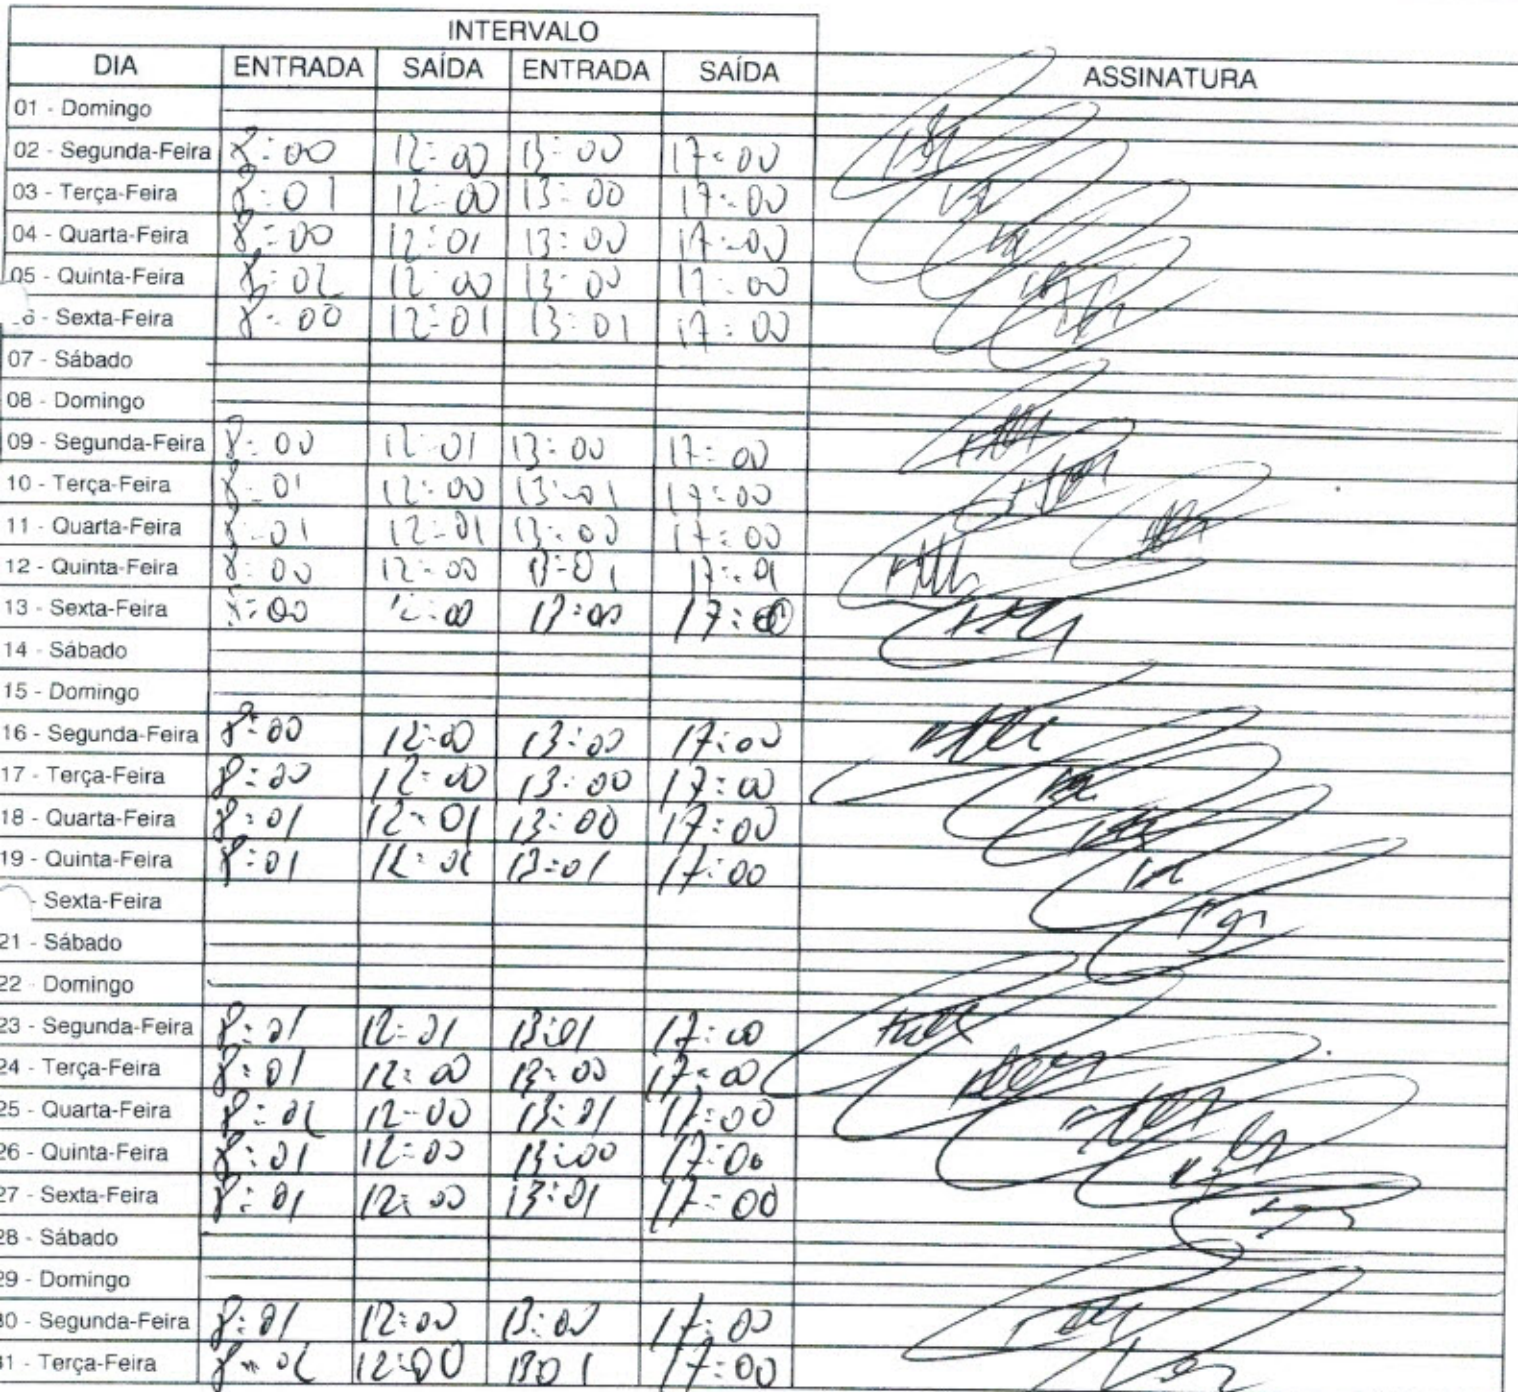 INTERVALO
DIA ENTRADA SAÍDA ENTRADA SAÍDA ASSINATURA
01 - Domingo
02 - Segunda-Feira 8:00 12:00 13:00 17:00
03 - Terça-Feira 8:01 12:00 13:00 17:00
04 - Quarta-Feira 8:00 12:01 13:00 17:00
05 - Quinta-Feira 8:02 12:00 13:00 17:00
6 - Sexta-Feira 8:00 12:01 13:01 17:00
07 - Sábado
08 - Domingo
09 - Segunda-Feira 8:00 12:01 13:00 17:00
10 - Terça-Feira 8:01 12:00 13:01 17:00
11 - Quarta-Feira 8:01 12:01 13:00 17:00
12 - Quinta-Feira 8:00 12:00 13:01 17:01
13 - Sexta-Feira 8:00 12:00 13:00 17:00
14 - Sábado
15 - Domingo
16 - Segunda-Feira 8:00 12:00 13:00 17:00
17 - Terça-Feira 8:00 12:00 13:00 17:00
18 - Quarta-Feira 8:01 12:01 13:00 17:00
19 - Quinta-Feira 8:01 12:01 13:01 17:00
- Sexta-Feira
21 - Sábado
22 - Domingo
23 - Segunda-Feira 8:01 12:01 13:01 17:00
24 - Terça-Feira 8:01 12:00 13:00 17:00
25 - Quarta-Feira 8:02 12:00 13:01 17:00
26 - Quinta-Feira 8:01 12:00 13:00 17:00
27 - Sexta-Feira 8:01 12:00 13:01 17:00
28 - Sábado
29 - Domingo
30 - Segunda-Feira 8:01 12:00 13:00 17:00
31 - Terça-Feira 8:02 12:00 1301 17:00